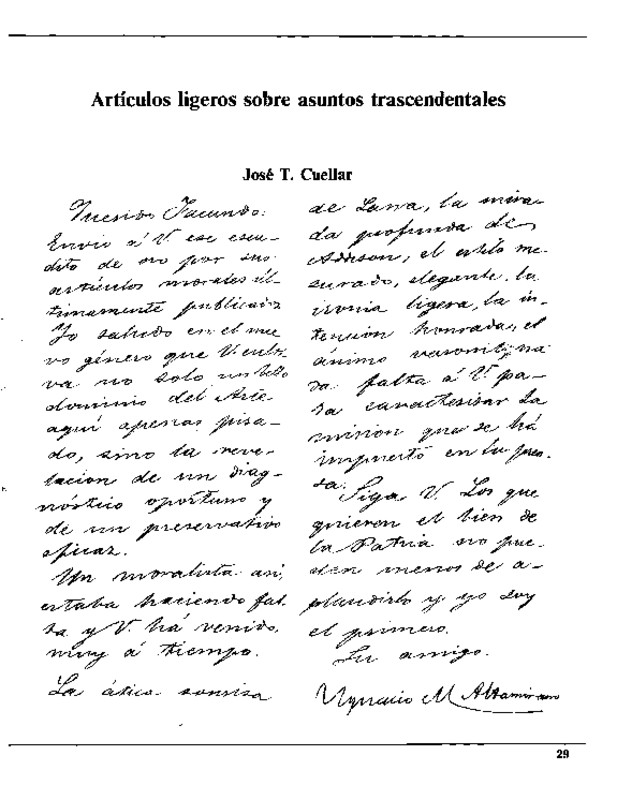 Artículos ligeros sobre asuntos trascendentales
José T. Cuellar
Querido Facundo:
Envío á V. ese escu-
dito de oro por sus
artículos morales úl-
timamente publicados
Yo saludo en el nue
vo género que V. culti-
va no solo un bello
dominio del Arte
aquí apenas pisa-
do, sino la reve-
lacion de un diag-
nóstico oportuno y
de un preservativo
eficaz.
Un moralista asi,
estaba haciendo fal-
ta y V. há venido,
muy á tiempo.
La ática sonrisa
de Larra, la mira-
da profunda de
Addison, el estilo me-
surado, elegante, la
ironia ligera, la in-
tencion honrada, el
ánimo varonil, na
da falta á V. pa-
ra caracterizar la
mision que se há
impuesto en la pren-
sa.
Siga V. Los que
quieren el bien de
la Patria no pue-
den menos de a-
plaudirlo y yo soy
el primero.
Su amigo.
Ygnacio M. Altamirano
29